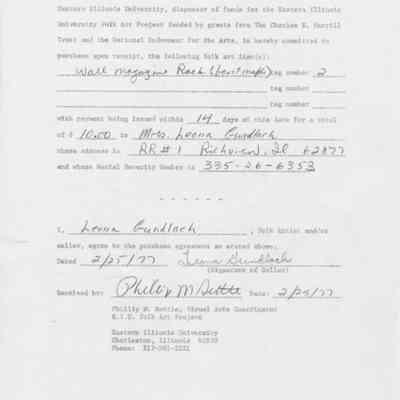 Eastern Illinois University, dispenser of funds for the Eastern Illinois
University Folk Art Project funded by grants from The Charles E. Merrill
Trust and the National Endowment for the Arts, is hereby committed to
purchase upon receipt, the following folk art item(s):
Wall Magazine Rack (bent maple) tag number 2
tag number
tag number
with payment being issued within 14 days of this date for a total
of $ 10.00 to Mrs. Leona Gundlach
whose address is RR#1 Richview, Il 62877
and whose Social Security Number is [redacted]
I, Leona Gundlach, Folk Artist and/or
seller, agree to the purchase agreement as stated above.
Dated 2/25/77 Leona Gundlach
(Signature of Seller)
Received by: Philip M Settle Date: 2/25/77
Phillip M. Settle, Visual Arts Coordinator
E.I.U. Folk Art Project
Eastern Illinois University
Charleston, Illinois 61920
Phone: 217-581-